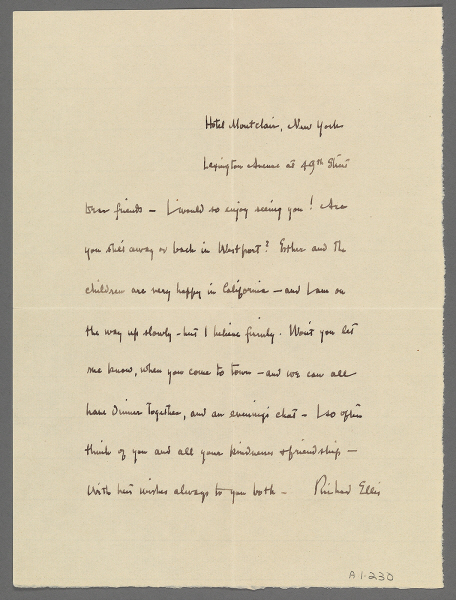 Hotel Montclair, New York
Lexington Avenue at 49th Street
Dear friends — I would so enjoy seeing you! Are
you still away or back in Westport? Esther and the
children are very happy in California — and I am on
the way up slowly — but I believe firmly. Won't you let
me know, when you come to town — and we can all
have dinner together, and an evening's chat — I so often
think of you and all your kindness & friendship —
With best wishes always to you both — Richard Ellis
A.1-230